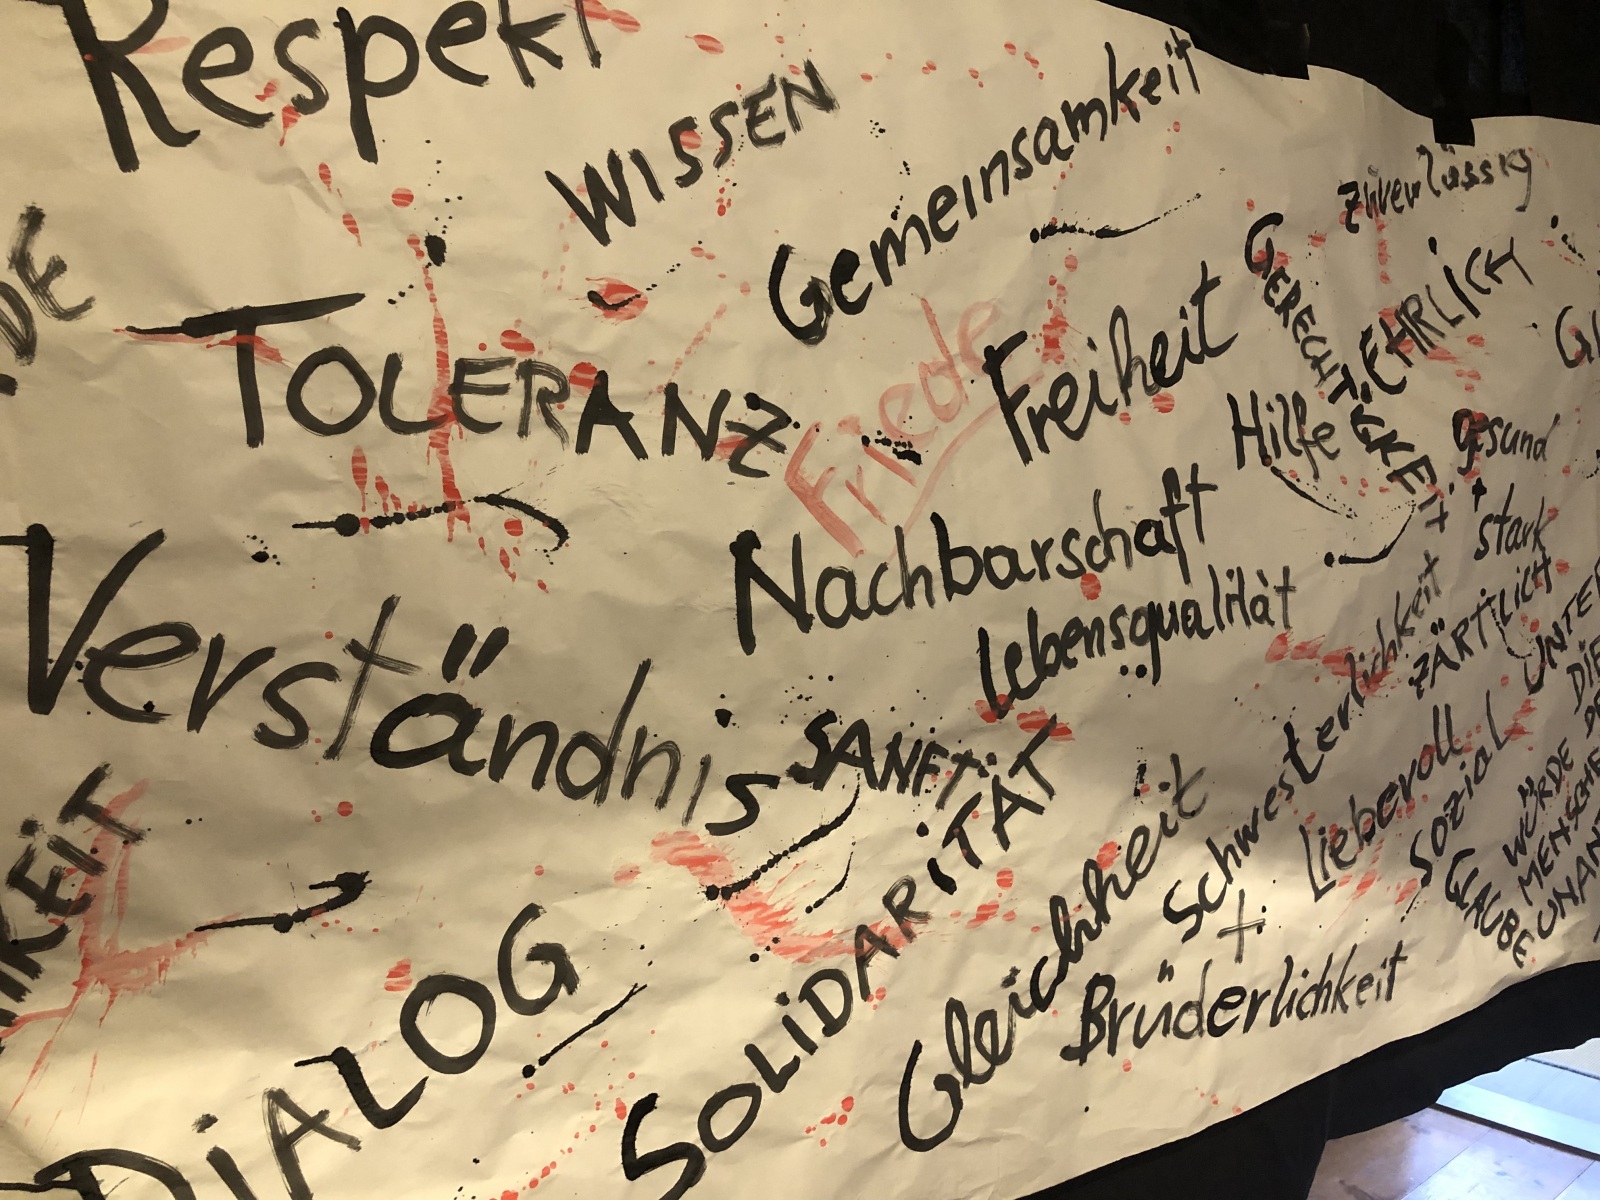 Respekt
WISSEN
Gemeinsamkeit
Zuverlässig
DE
TOLERANZ
Friede
Freiheit
GERECHTIGKEIT
EHRLICH
Hilfe
Gesund
+
stark
Nachbarschaft
Lebensqualität
ZÄRTLICH
Verständnis
SANFT
SOLIDARITÄT
KEIT
DIALOG
Gleichheit
Schwesterlichkeit
+
Brüderlichkeit
Liebevoll
Sozial
GLAUBE
DIE
WÜRDE